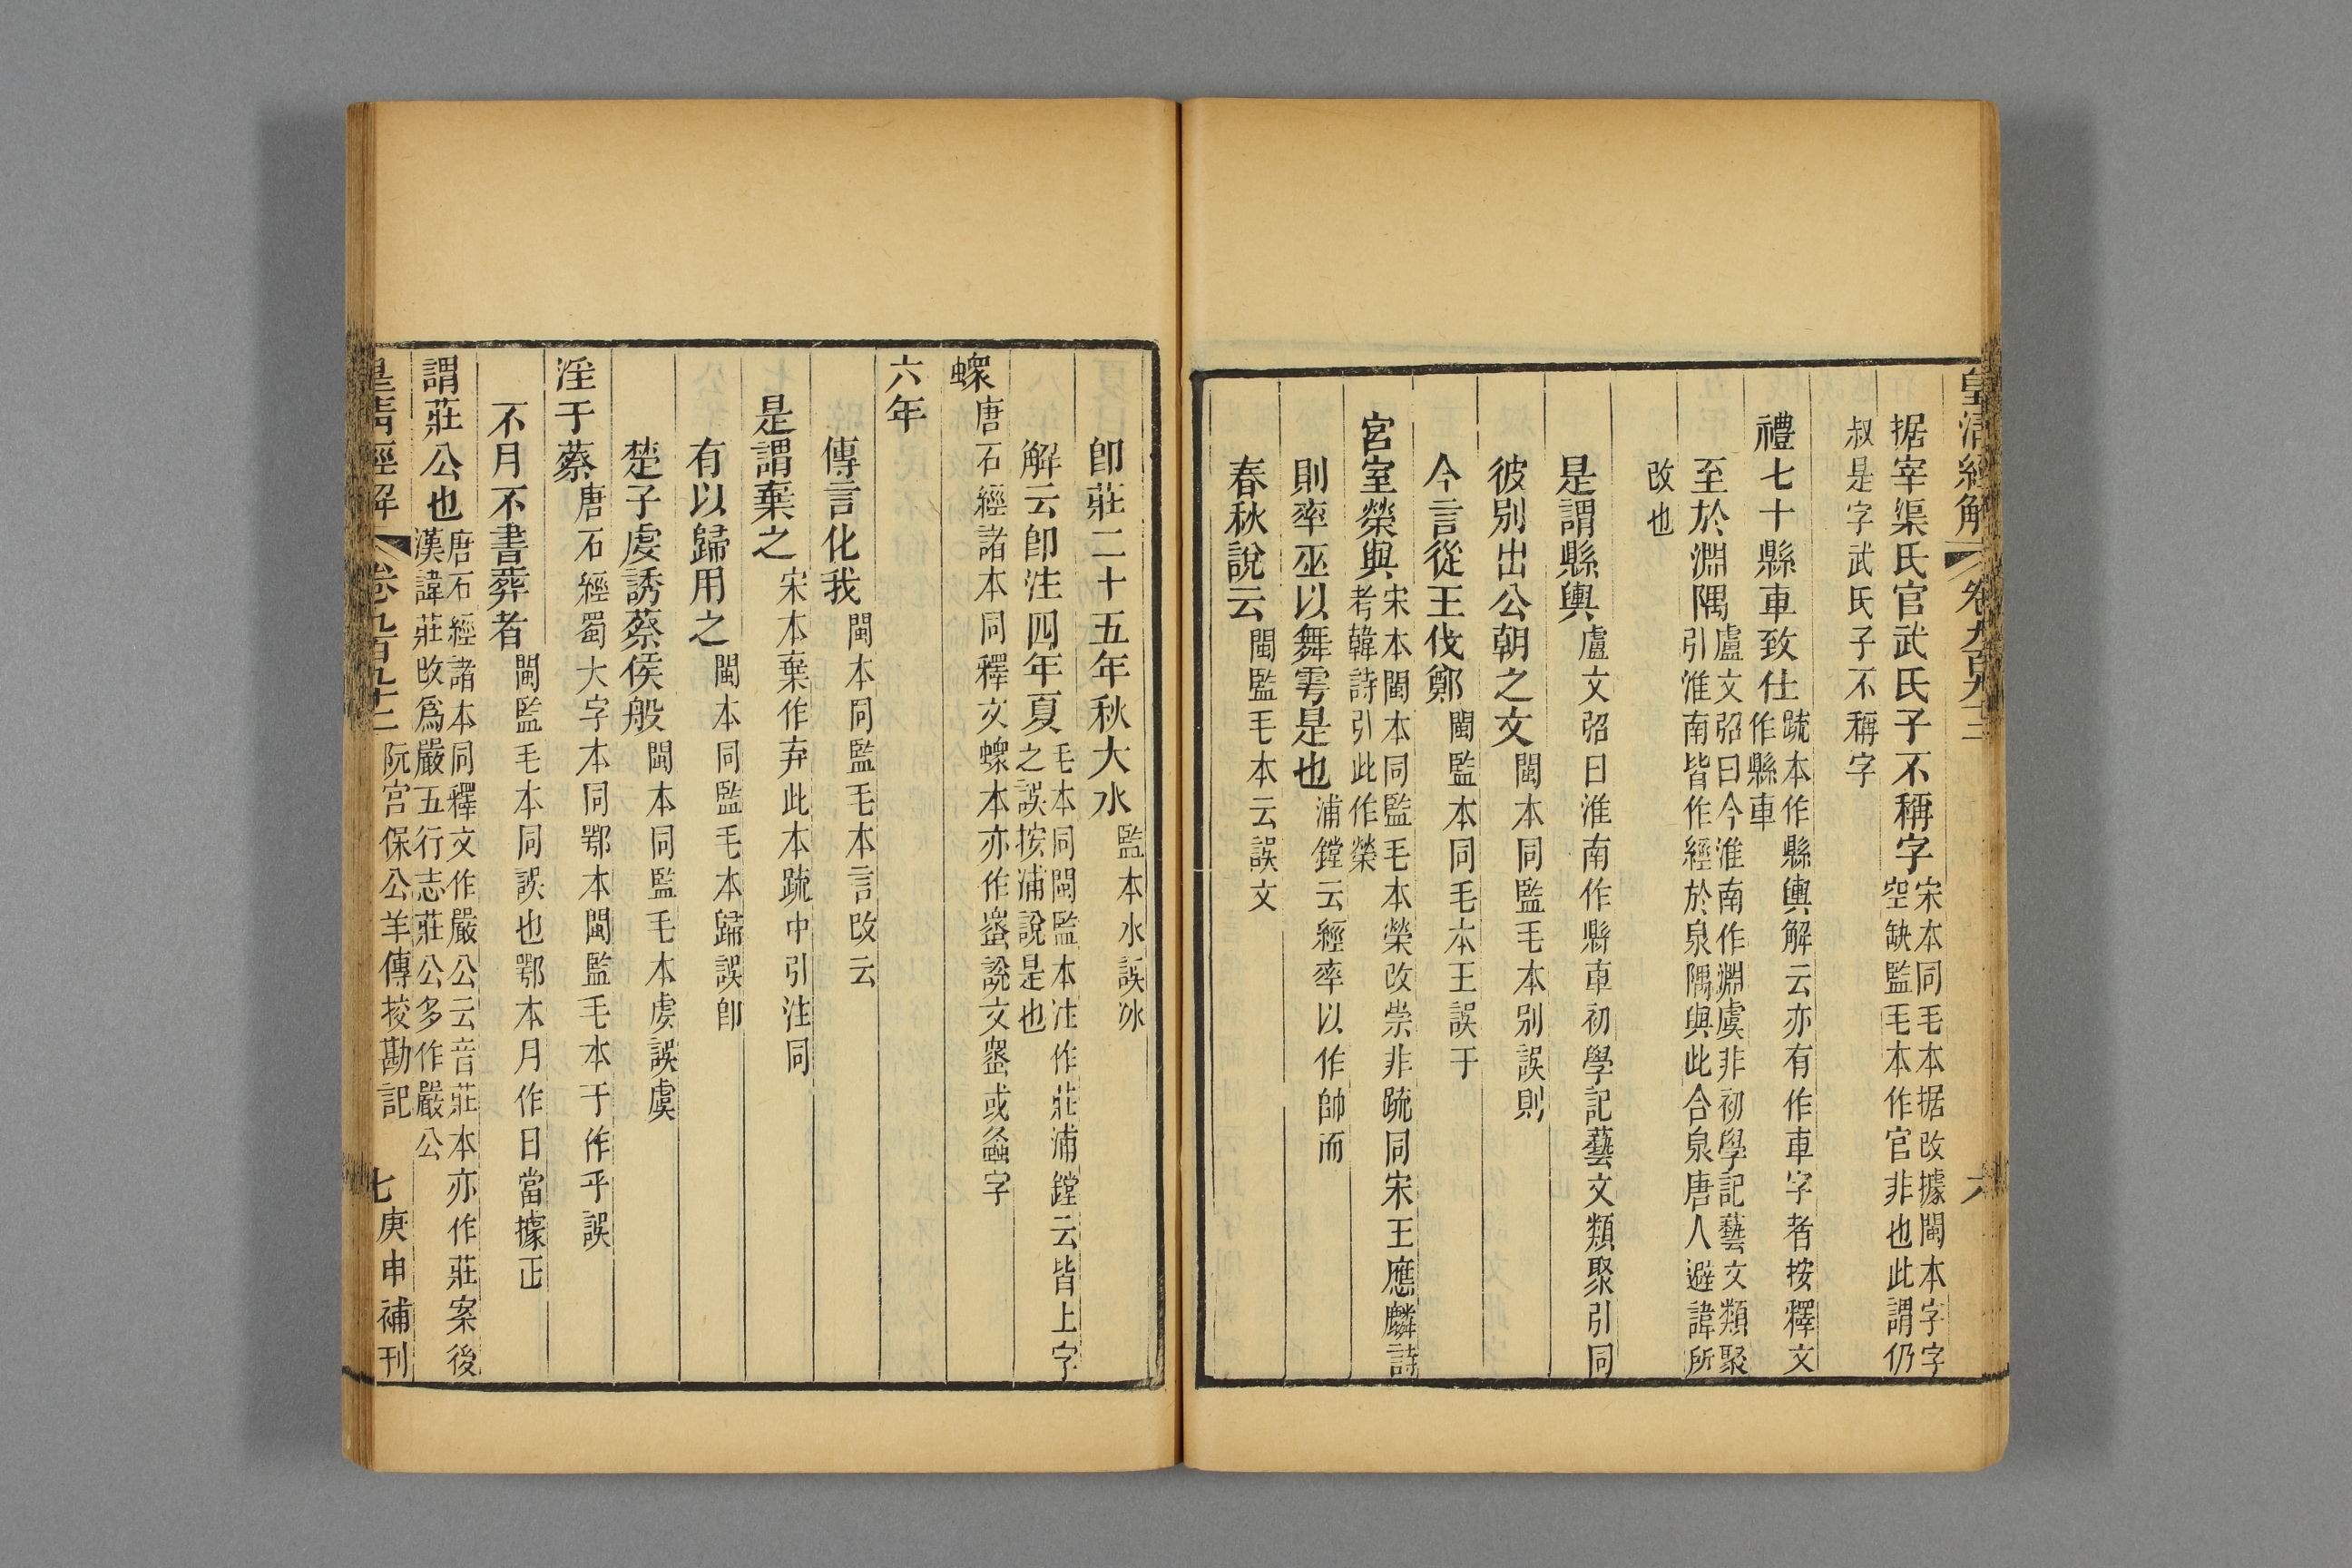 皇清經解 卷九百九十二 六
据宰渠氏官武氏子不稱字宋本同毛本据改據閩本字字空缺監毛本作官非也此謂仍
叔是字武氏子不稱字
禮七十縣車致仕疏本作縣輿解云亦有作車字者按釋文作縣車
至於淵隅盧文弨曰今淮南作淵虞非初學記藝文類聚引淮南皆作經於泉隅與此合泉唐人避諱所
改也
是謂縣輿盧文弨曰淮南作縣車初學記藝文類聚引同
彼別出公朝之文閩本同監毛本別誤則
今言從王伐鄭閩監本同毛本王誤于
宮室榮與宋本閩本同監毛本榮改崇非疏同宋王應麟詩考韓詩引此作榮
則率巫以舞雩是也浦鏜云經率以作帥而
春秋說云閩監毛本云誤文
卽莊二十五年秋大水監本水誤冰
解云卽注四年夏毛本同閩監本注作莊浦鏜云皆上字之誤按浦說是也
螺唐石經諸本同釋文螺本亦作蠡說文蠡或螽字
六年
傳言化我閩本同監毛本言改云
是謂棄之宋本棄作弃此本疏中引注同
有以歸用之閩本同監毛本歸誤卽
楚子虔誘蔡侯般閩本同監毛本虔誤虞
淫于蔡唐石經蜀大字本同鄂本閩監毛本于作乎誤
不月不書葬者閩監毛本同誤也鄂本月作日當據正
謂莊公也唐石經諸本同釋文作嚴公云音莊本亦作莊案後漢諱莊改爲嚴五行志莊公多作嚴公
皇清經解 卷九百九十二 阮宮保公羊傳挍勘記 七 庚申補刊